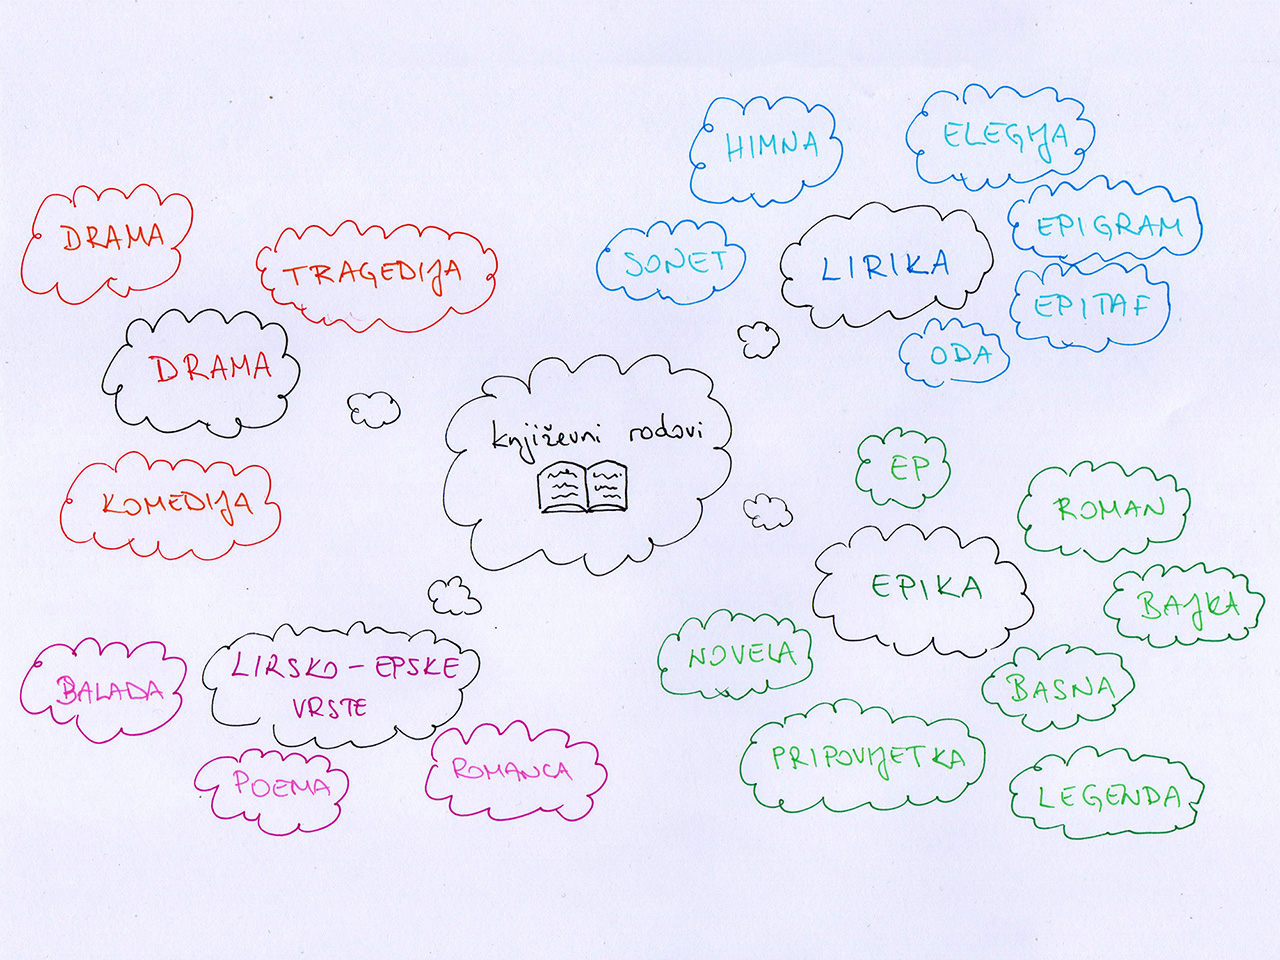 književni rodovi
DRAMA
DRAMA
TRAGEDIJA
KOMEDIJA
LIRIKA
HIMNA
ELEGIJA
SONET
EPIGRAM
EPITAF
ODA
EPIKA
EP
ROMAN
BAJKA
NOVELA
BASNA
PRIPOVIJETKA
LEGENDA
LIRSKO-EPSKE
VRSTE
BALADA
POEMA
ROMANCA